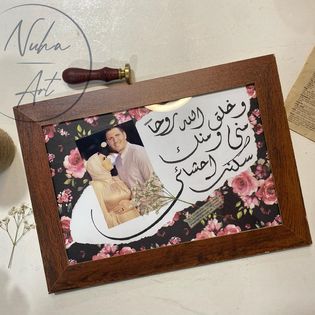 Nuha
Art
وخلق الله روحاً
مني ومنك
سكنت احشائي